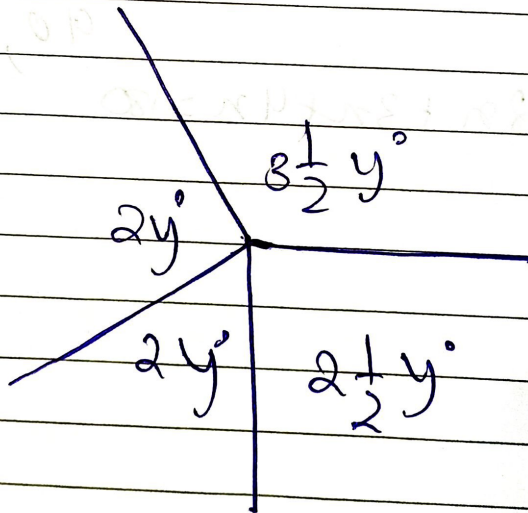 3 1/2 y°
2y°
2y°
2 1/2 y°